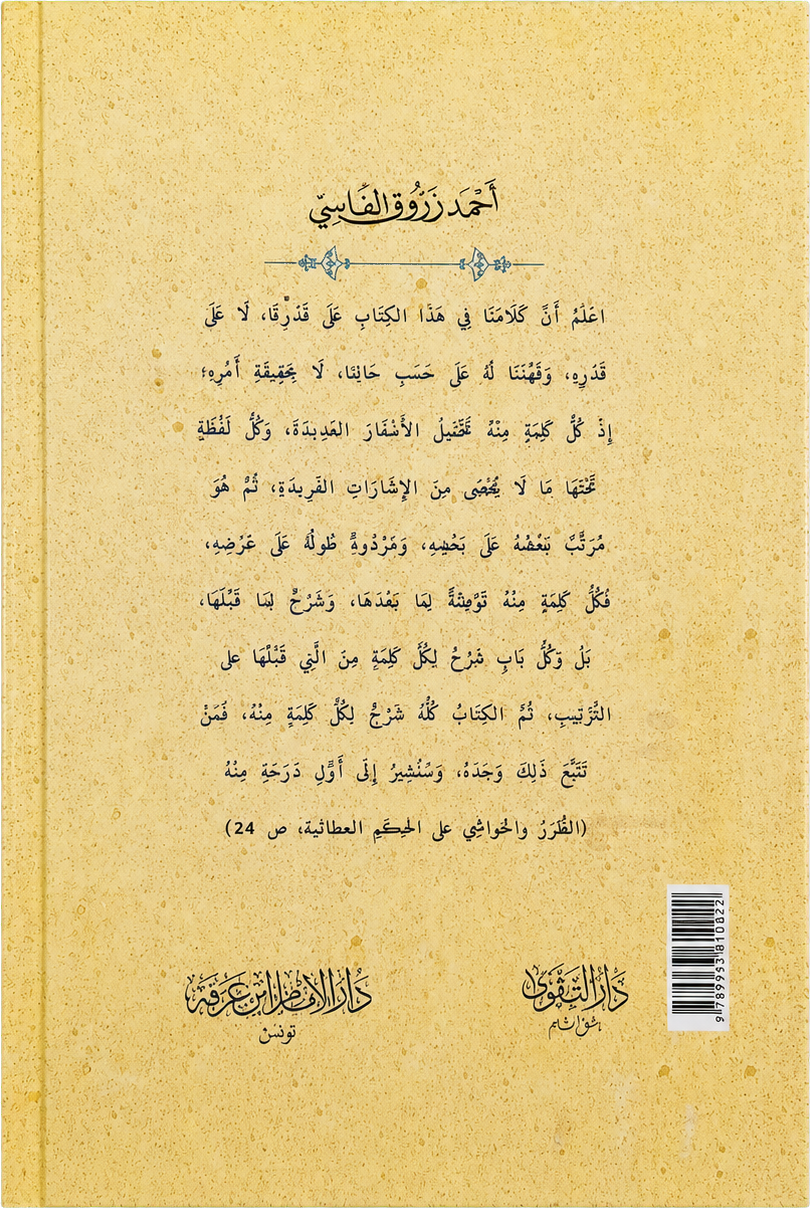 أَحْمَد زَرُّوق الفَاسِيّ
اعْلَمْ أَنَّ كَلَامَنَا فِي هَذَا الكِتَابِ عَلَى قَدْرِنَا، لَا عَلَى
قَدْرِهِ، لَهُ عَلَى حَسَبِ لَا بِحَقِيقَةِ أَمْرِهِ؛
إِذْ كُلُّ كَلِمَةٍ مِنْهُ العَدِيدَةَ، وَكُلُّ لَفْظَةٍ
تَحْتَهَا مَا لَا يُحْصَى مِنَ الإِشَارَاتِ الفَرِيدَةِ، ثُمَّ هُوَ
مُرَتَّبٌ بَعْضُهُ عَلَى طُولُهُ عَلَى عَرْضِهِ،
فَكُلُّ كَلِمَةٍ مِنْهُ لِمَا بَعْدَهَا، وَشَرْحٌ لِمَا قَبْلَهَا،
بَلْ وَكُلُّ بَابٍ شَرْحٌ لِكُلِّ كَلِمَةٍ مِنَ الَّتِي قَبْلَهَا على
التَّرْتِيبِ، ثُمَّ الكِتَابُ كُلُّهُ شَرْحٌ لِكُلِّ كَلِمَةٍ مِنْهُ، فَمَنْ
تَتَبَّعَ ذَلِكَ وَجَدَهُ، وَسَنُشِيرُ إِلَى أَوَّلِ دَرَجَةٍ مِنْهُ
(الطُّرَرُ والحَواشِي على الحِكَمِ العطائية، ص 24)
دَارُ التَّقْوَى
دَارُ الإِمَامِ ابْنِ عَرَفَة
تونس
9789953810822